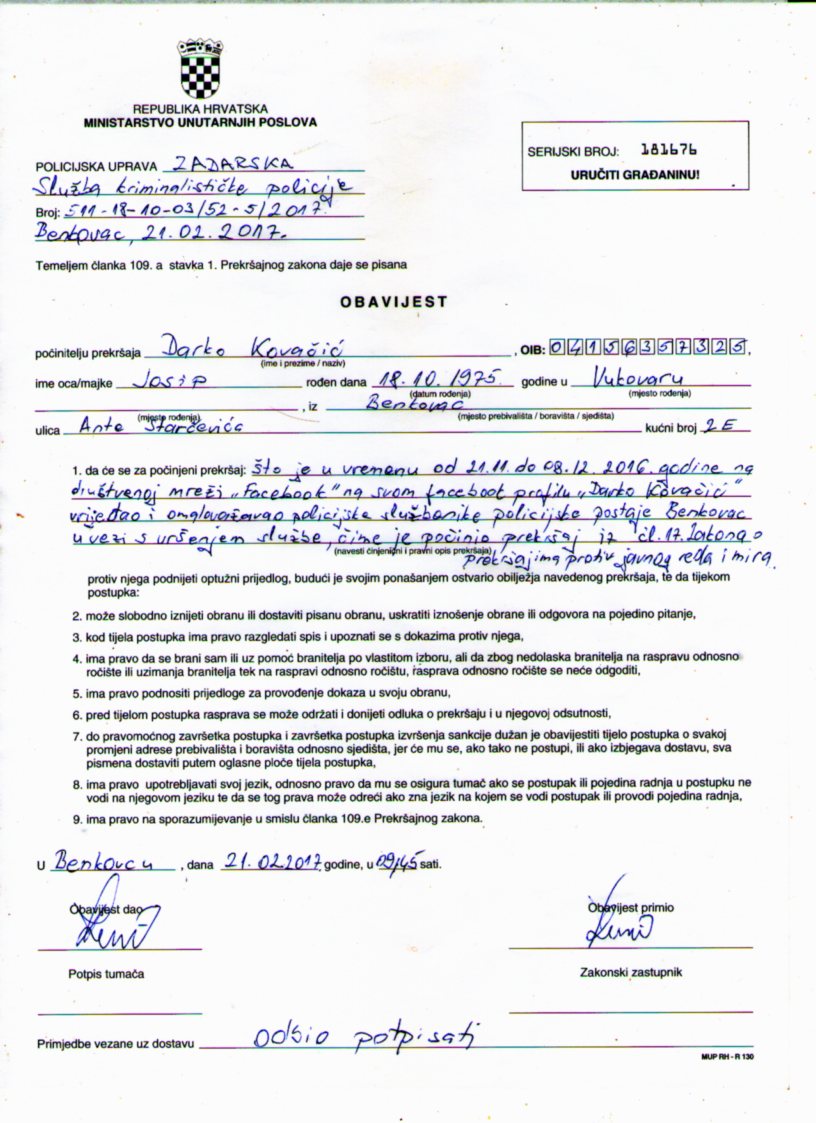 REPUBLIKA HRVATSKA
MINISTARSTVO UNUTARNJIH POSLOVA
SERIJSKI BROJ: 181676
URUČITI GRAĐANINU!
POLICIJSKA UPRAVA ZADARSKA
Služba kriminalističke policije
Broj: 511-18-10-03/52-5/2017.
Benkovac, 21.02.2017.
Temeljem članka 109. a stavka 1. Prekršajnog zakona daje se pisana
OBAVIJEST
počinitelju prekršaja Darko Kovačić, OIB: 04156357325,
(ime i prezime / naziv)
ime oca/majke Josip rođen dana 18.10.1975. godine u Vukovaru
(datum rođenja) (mjesto rođenja)
, iz Benkovac
(mjesto rođenja) (mjesto prebivališta / boravišta / sjedišta)
ulica Ante Starčevića kućni broj 2E
1. da će se za počinjeni prekršaj: što je u vremenu od 21.11. do 08.12. 2016. godine na
društvenoj mreži „Facebook" na svom facebook profilu „Darko Kovačić"
vrijeđao i omalovažavao policijske službenike policijske postaje Benkovac
u vezi s vršenjem službe, čime je počinio prekršaj iz čl.17. Zakona o
(navesti činjenični i pravni opis prekršaja)
prekršajima protiv javnog reda i mira.
protiv njega podnijeti optužni prijedlog, budući je svojim ponašanjem ostvario obilježja navedenog prekršaja, te da tijekom
postupka:
2. može slobodno iznijeti obranu ili dostaviti pisanu obranu, uskratiti iznošenje obrane ili odgovora na pojedino pitanje,
3. kod tijela postupka ima pravo razgledati spis i upoznati se s dokazima protiv njega,
4. ima pravo da se brani sam ili uz pomoć branitelja po vlastitom izboru, ali da zbog nedolaska branitelja na raspravu odnosno
ročište ili uzimanja branitelja tek na raspravi odnosno ročištu, rasprava odnosno ročište se neće odgoditi,
5. ima pravo podnositi prijedloge za provođenje dokaza u svoju obranu,
6. pred tijelom postupka rasprava se može održati i donijeti odluka o prekršaju i u njegovoj odsutnosti,
7. do pravomoćnog završetka postupka i završetka postupka izvršenja sankcije dužan je obavijestiti tijelo postupka o svakoj
promjeni adrese prebivališta i boravišta odnosno sjedišta, jer će mu se, ako tako ne postupi, ili ako izbjegava dostavu, sva
pismena dostaviti putem oglasne ploče tijela postupka,
8. ima pravo upotrebljavati svoj jezik, odnosno pravo da mu se osigura tumač ako se postupak ili pojedina radnja u postupku ne
vodi na njegovom jeziku te da se tog prava može odreći ako zna jezik na kojem se vodi postupak ili provodi pojedina radnja,
9. ima pravo na sporazumijevanje u smislu članka 109.e Prekršajnog zakona.
U Benkovcu, dana 21.02.2017 godine, u 09,45 sati.
Obavijest dao Obavijest primio
Potpis tumača Zakonski zastupnik
Primjedbe vezane uz dostavu odbio potpisati
MUP RH - R 130